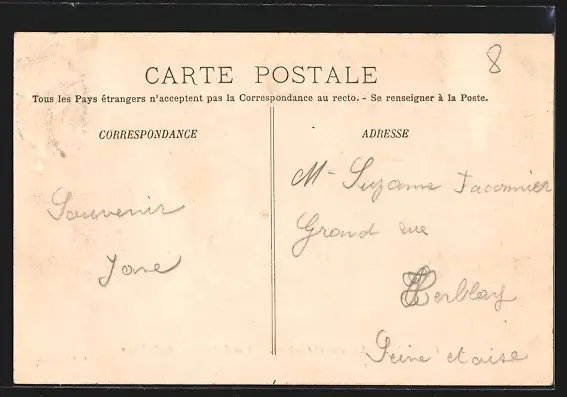 8
CARTE POSTALE
Tous les Pays étrangers n'acceptent pas la Correspondance au recto. - Se renseigner à la Poste.
CORRESPONDANCE
ADRESSE
Souvenir
Jane
M- Suzanne
Grand rue
Herblay
Seine et oise